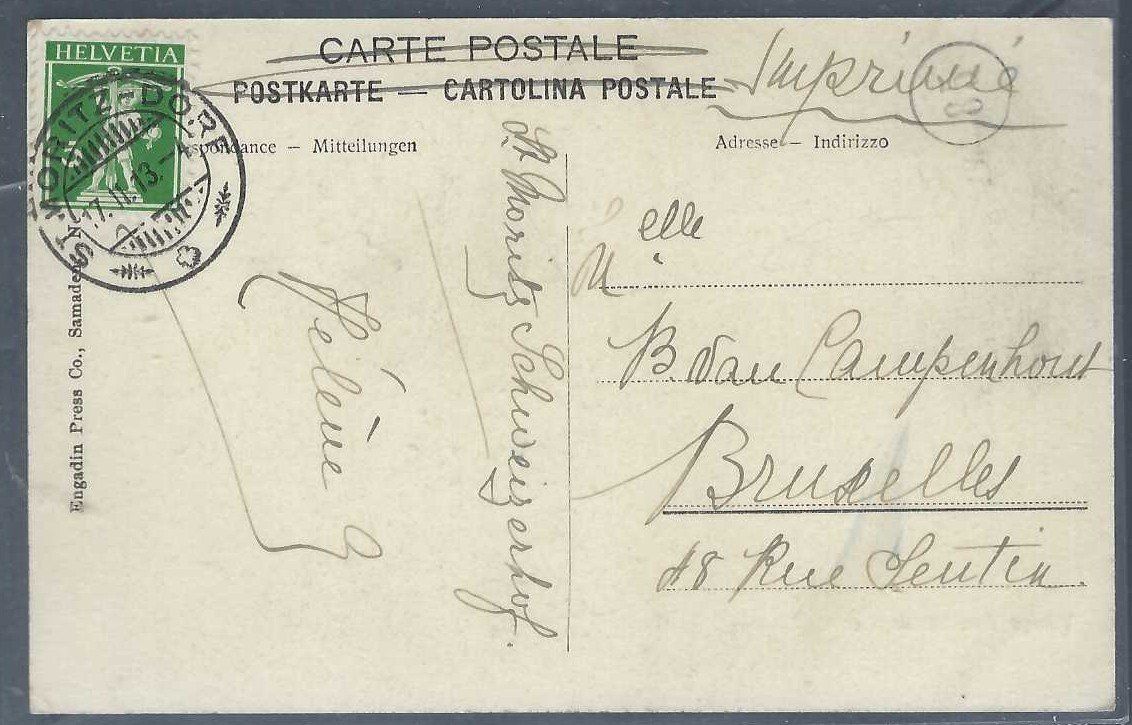 HELVETIA
CARTE POSTALE
POSTKARTE — CARTOLINA POSTALE
Imprimé
8
ST. MORITZ-DORF
17.II.13.-4
spondance – Mitteilungen
Adresse – Indirizzo
St Moritz Schweizerhof.
Hélène
Melle
B. Van Campenhout
Bruxelles
48 Rue Sentin.
Engadin Press Co., Samaden. N